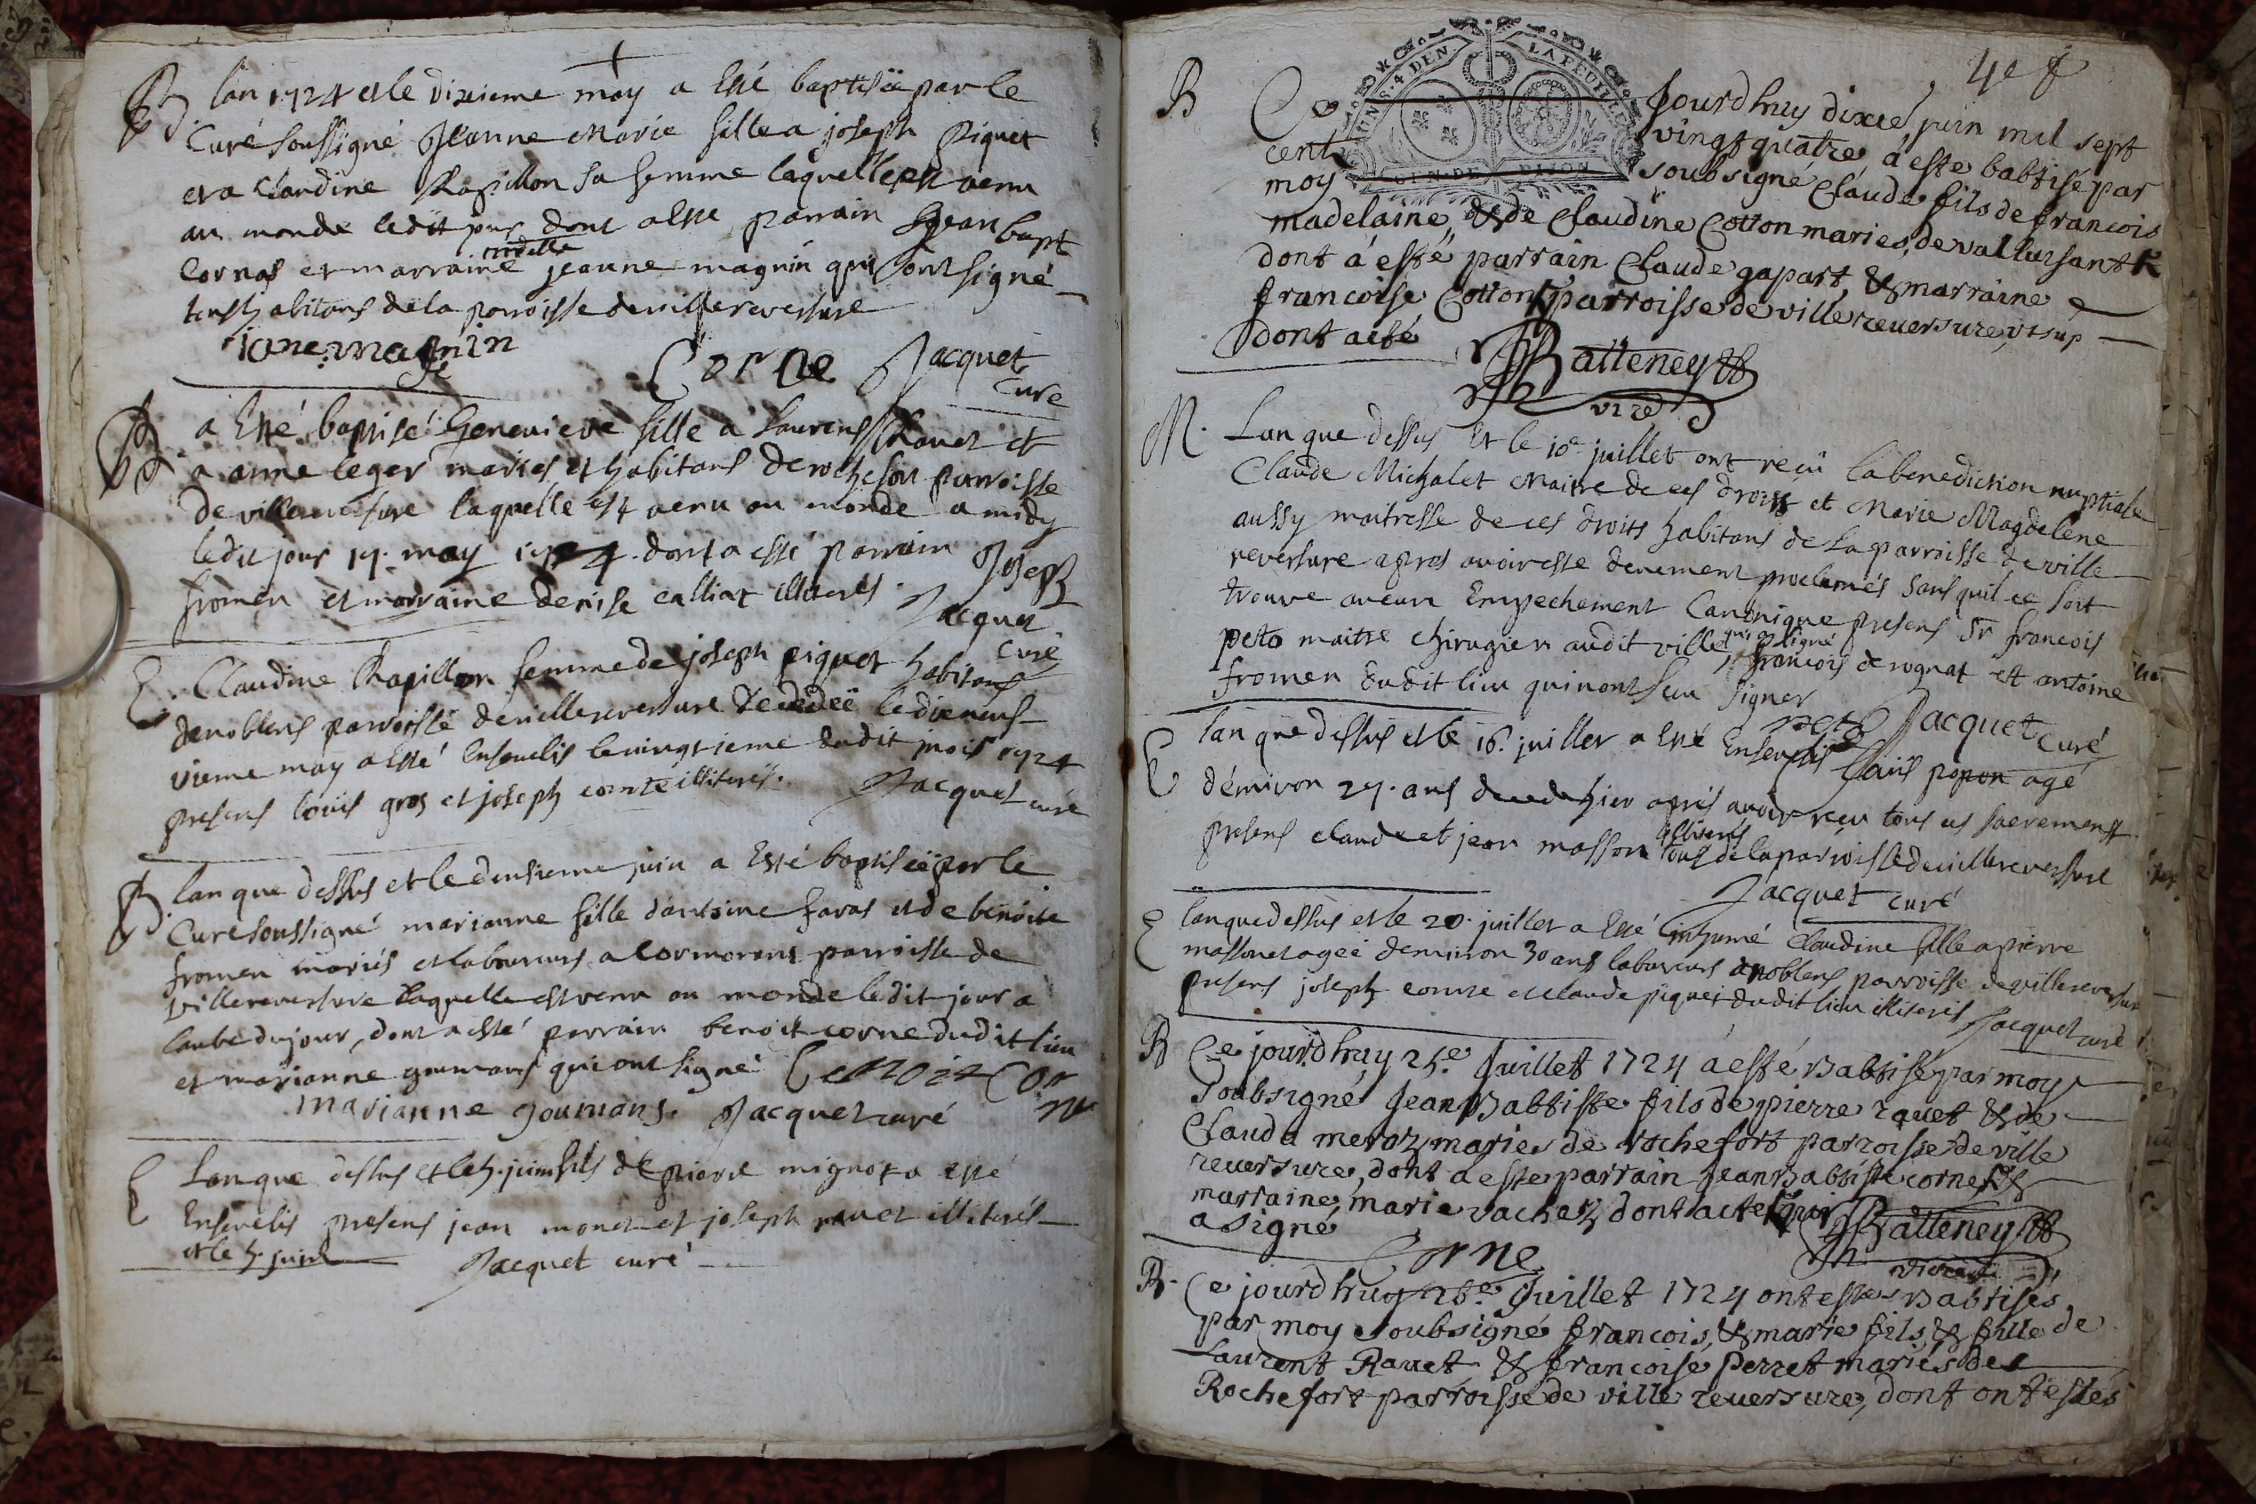 B. lan 1724 et le dixieme may a Esté baptiseë par le
Curé soussigné Jeanne Marie fille a joseph Piquet
et a Claudine Rapillon sa femme laquelle est venu
au monde ledit jour dont a Esté parrain Jean bapt
Cornas et marraine jeanne magnin qui ont signé
tous habitans de la parroisse de villereversure
iane magnin
Corne Jacquet
curé
B. a Esté baptisé Genevieve fille a Laurens Ravet et
a anne leger mariés et habitans de rochefort parroisse
de villereversure laquelle est venu au monde a midy
ledit jour 17. may 1724. dont a esté parrain Joseph
fromen et marraine denise calliat illiterés. Jacquet
curé
E. Claudine Rapillon femme de joseph piquet habitans
de noblens parroisse de villereversure decedeë le dieneuf
vieme may a Esté Ensevelis le vingtieme dudit mois 1724
presens louis gros et joseph comte illiterés. Jacquet curé
B. lan que dessus et le deusieme juin a Esté baptiseë par le
Curé soussigné marianne fille dantoine favas et de benoite
fromen mariés et laboureurs a Cormorans parroisse de
villereversure laquelle est venu au monde ledit jour a
laube du jour, dont a esté parrain benoit corne dudit lieu
et marianne goumans qui ont signé Benoit Cor
marianne goumans. Jacquet curé ne
E Lan que dessus et le 5. juin fils de pierre mignot a esté
Ensevelis presens jean monet et joseph ravet illiterés
et le 5. juin Jacquet curé
4e f
UN S. 4. DEN. LA FEUILLE
GEN. DE DIJON
B Ce Jourdhuy dixie juin mil sept
cent vingt quatre a esté babtisé par
moy soubsigné Claude fils de francois
madelaine, & de Claudine Cotton maries, de valluisant
dont á esté parrain Claude gapart, & marraine
francoise Cotton parroisse de ville reuersure, vt sup
dont acte Batteney
vire
M. Lan que dessus Et le 10e juillet ont reçu la benediction nuptiale
Claude Michalet Maitre de ces droits et Marie Magdelene
aussy maitresse de ces droits habitans de la parroisse de ville
reversure apres avoir esté deuement proclamés sans quil ce soit
trouve aucun Empechement Canonique presens Sr francois
peto maitre chirugien audit ville, qui a signé francois derognat et antoine
fromen dudit lieu qui nont seu signer
peto Jacquet curé
E lan que dessus et le 16. juillet a Esté Ensevelis Louis popon agé
démiron 27. ans decede hier aprés avoir reçu tous ces sacremens
presens claude et jean masson illiterés tous de la parroisse de villereversure
Jacquet curé
E lan que dessus et le 20. juillet a Esté inhumé Claudine fille a pierre
massonet ageé demiron 30 ans laboureurs a noblens parroisse de villereversure
presens joseph comte et claude piquet dudit lieu illiterés Jacquet curé
B Ce jourdhuy 25.e Juillet 1724 á esté Babtisé par moy
soubsigné Jean Babtiste fils de pierre rauet & de
Clauda meroz maries de rochefort parroisse de ville
reuersure, dont a este parrain Jean Babtiste corne, &
marraine marie vachez, dont acte qui
a signé Batteney
Corne vicaire
B. Ce jourdhuy 26.e Juillet 1724 ont estes Babtisés
par moy soubsigné francois, & marie fils & fille de
Laurent Rauet & francoise perret mariés de
Rochefort parroisse de ville reuersure, dont ont estés